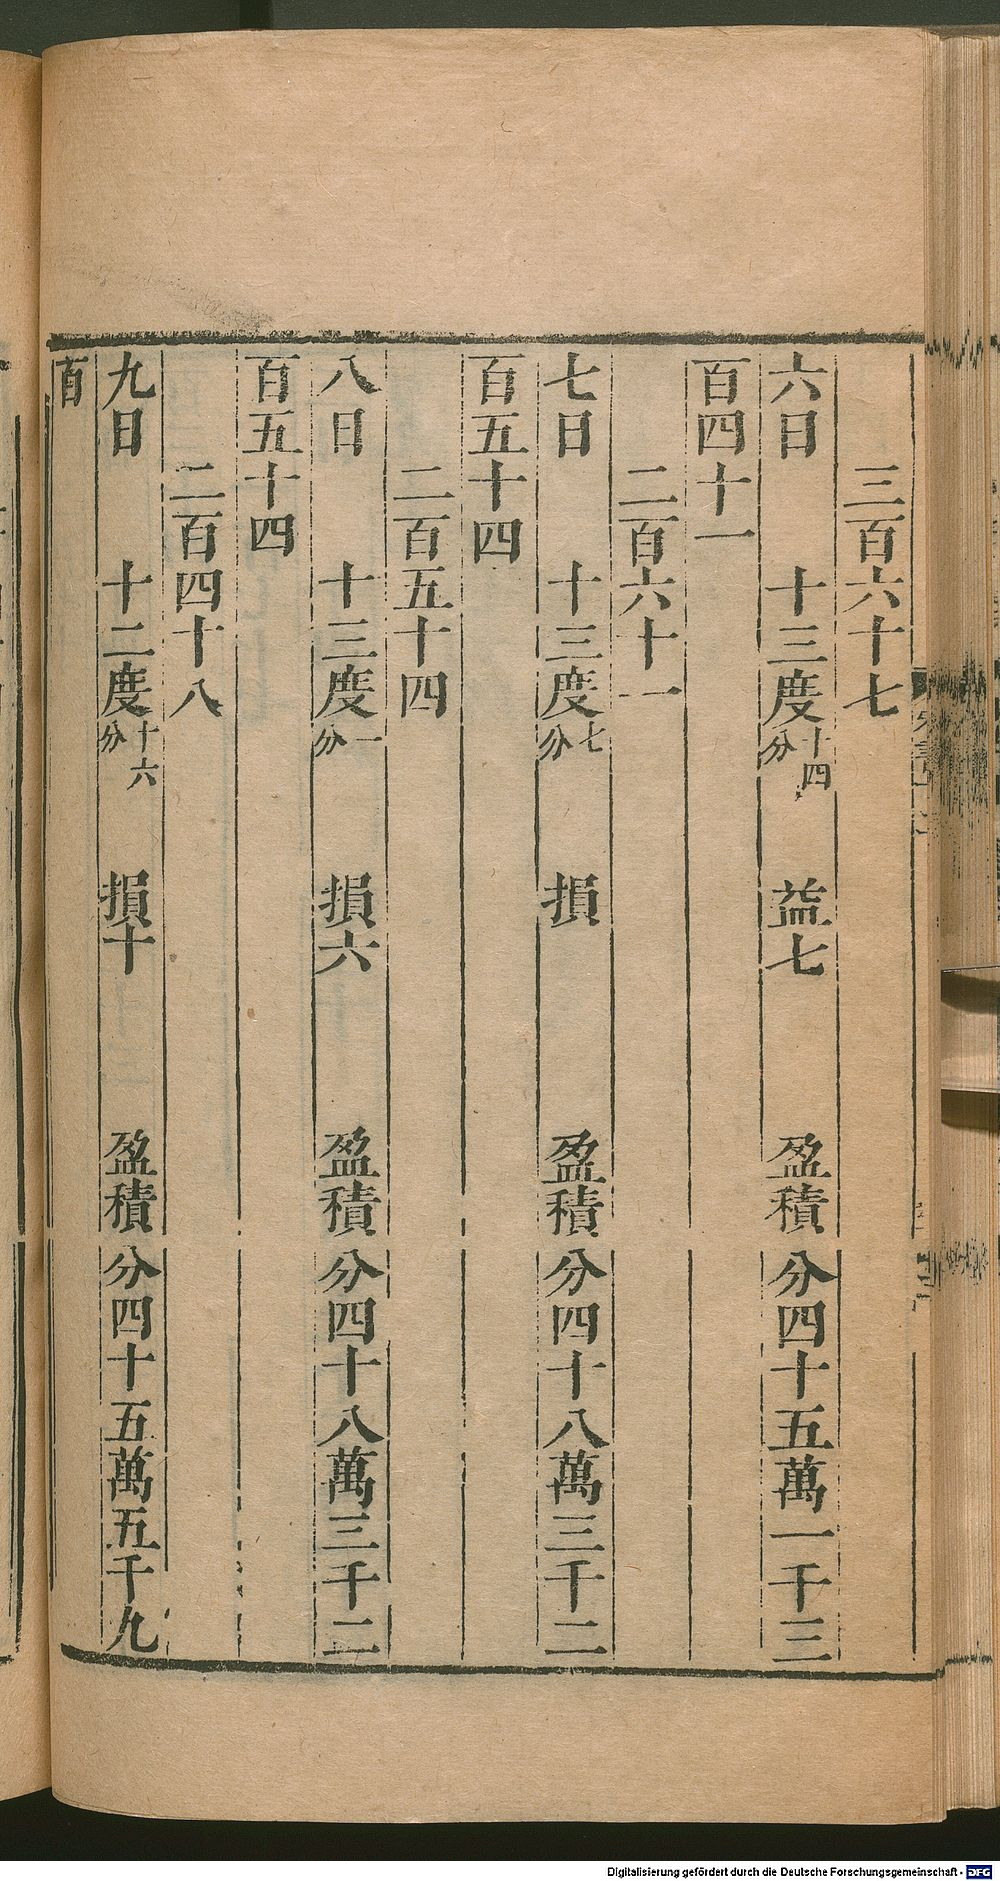 三百六十七
六日 十三度十四分 益七 盈積分四十五萬一千三
百四十一
二百六十一
七日 十三度七分 損 盈積分四十八萬三千二
百五十四
二百五十四
八日 十三度一分 損六 盈積分四十八萬三千二
百五十四
二百四十八
九日 十二度十六分 損十 盈積分四十五萬五千九
百
Digitalisierung gefördert durch die Deutsche Forschungsgemeinschaft - DFG